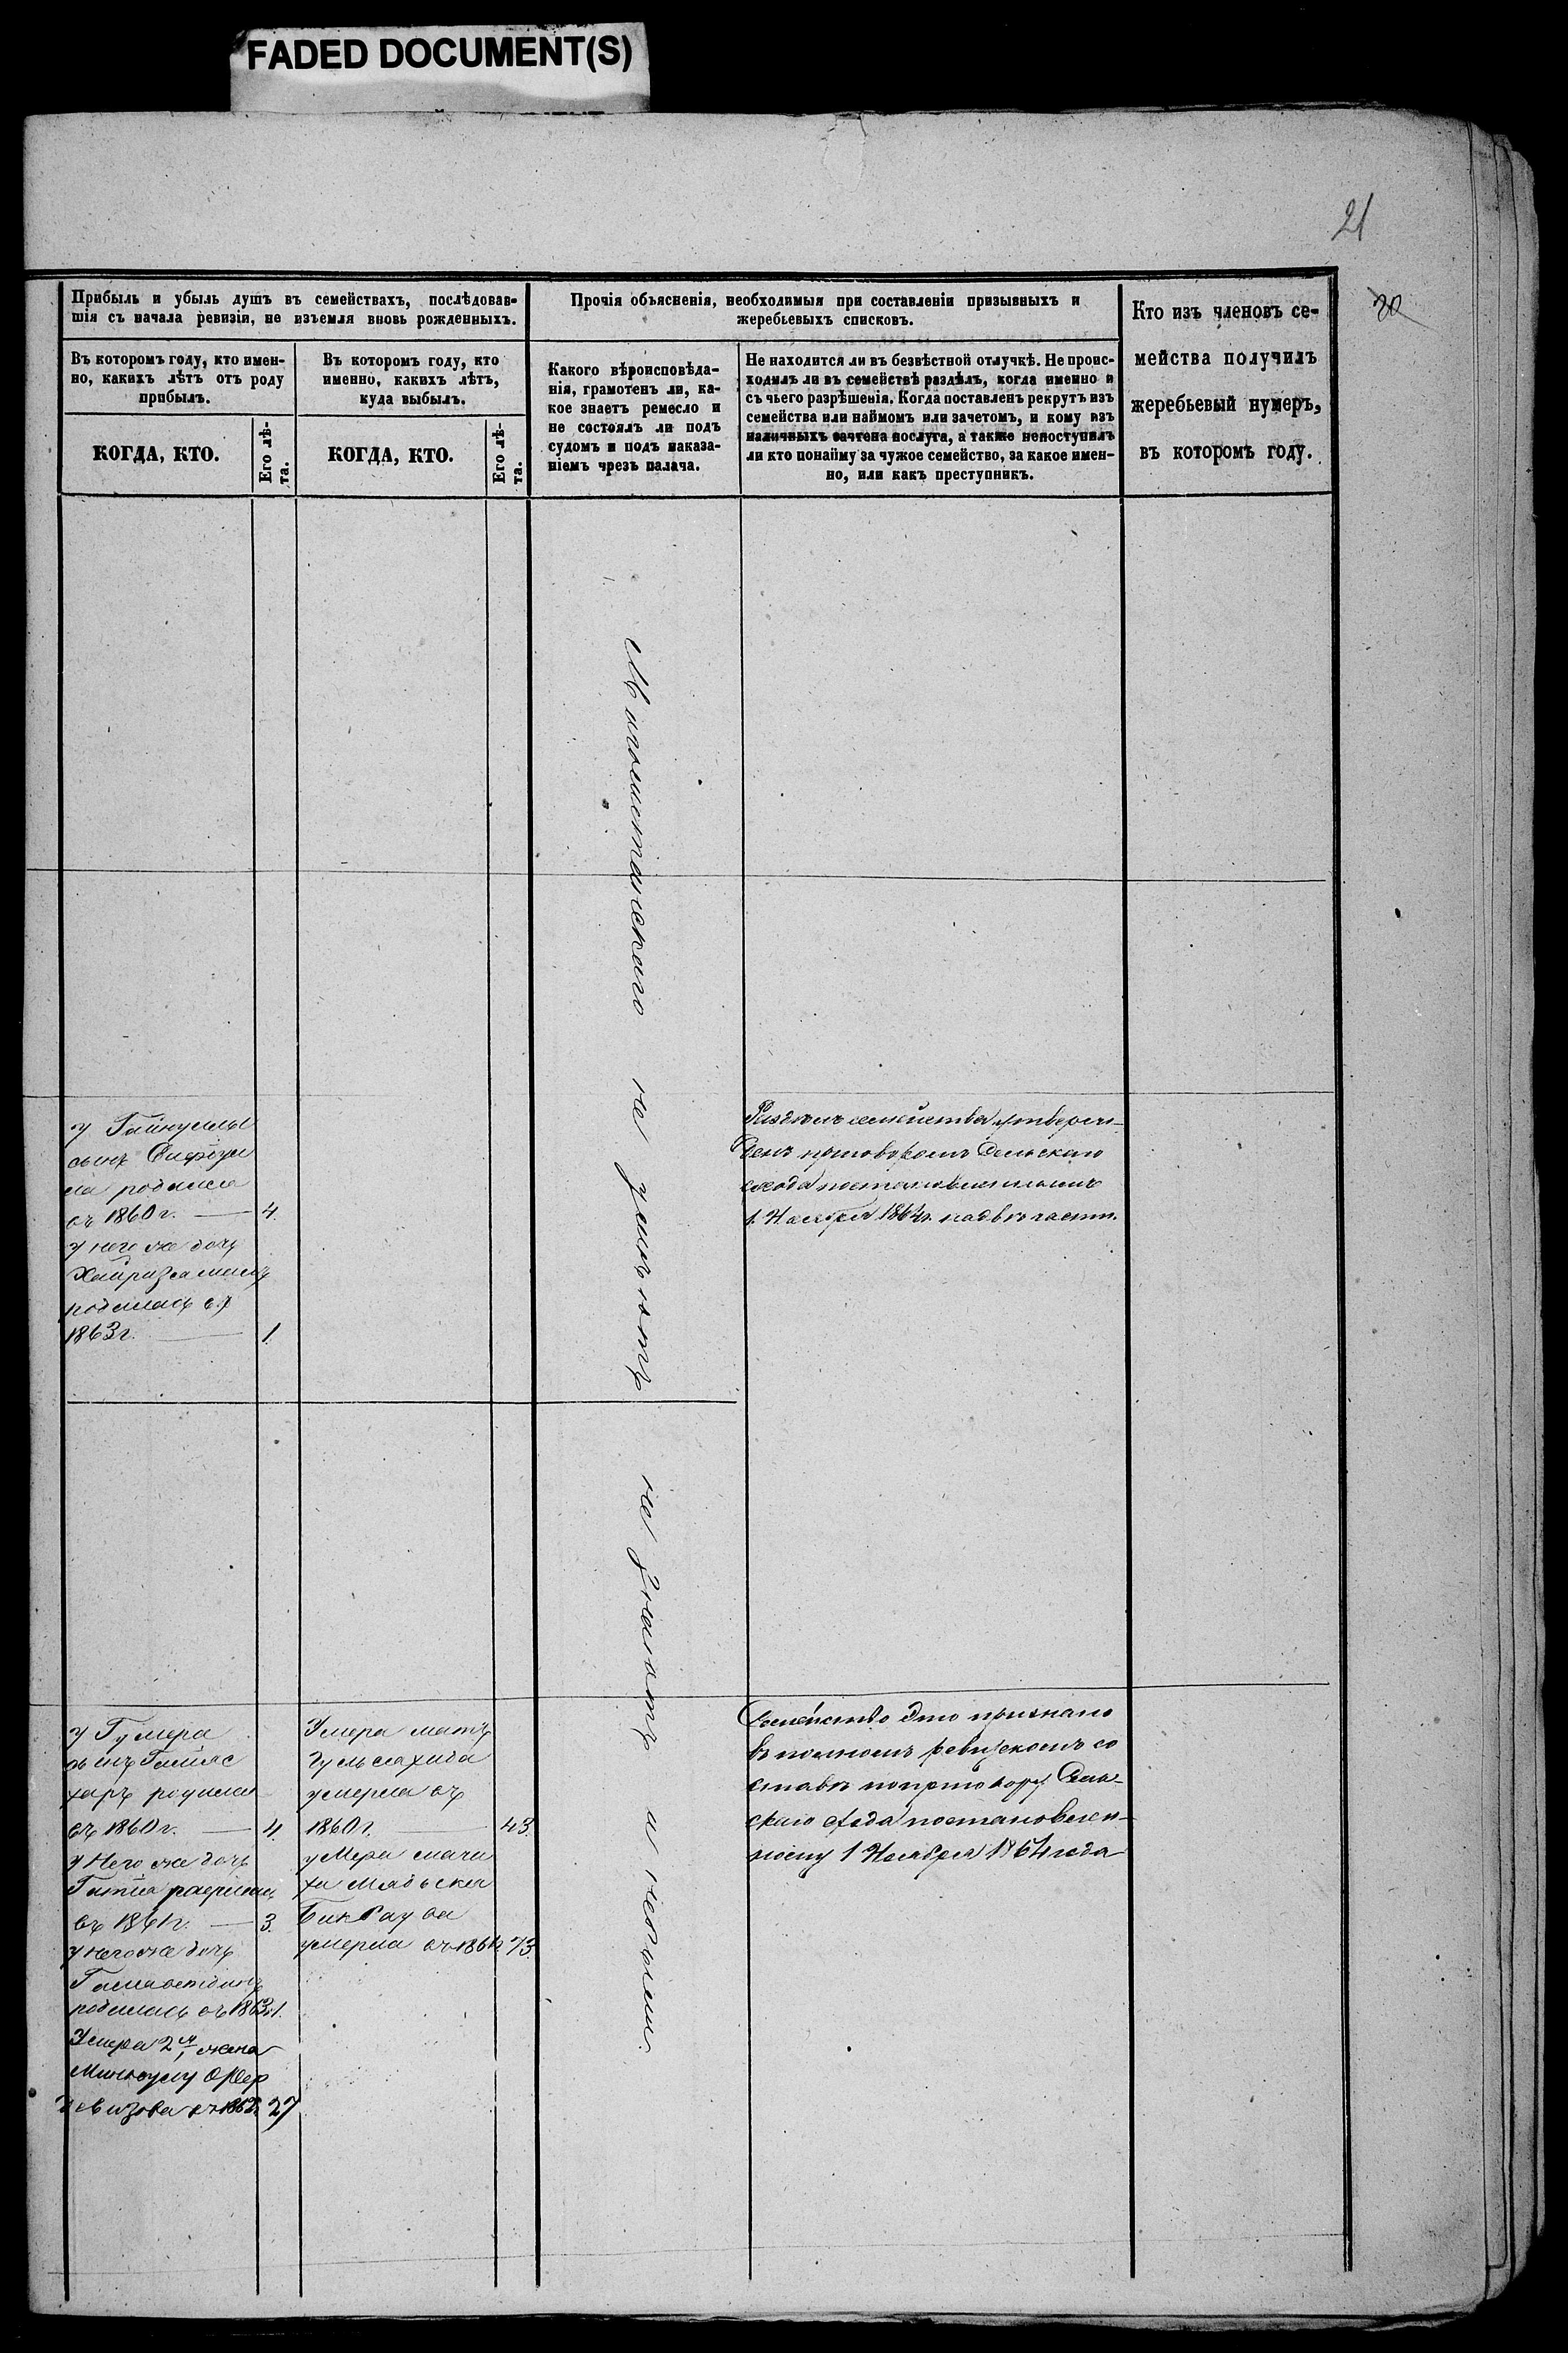 FADED DOCUMENT(S)
21
20
Прибыль и убыль душъ въ семействахъ, послѣдовав-
шія съ начала ревизіи, не изъемля вновь рожденныхъ.
Въ которомъ году, кто имен-
но, какихъ лѣтъ отъ роду
прибылъ.
КОГДА, КТО.
Его лѣ-
та.
Въ которомъ году, кто
именно, какихъ лѣтъ,
куда выбылъ.
КОГДА, КТО.
Его лѣ-
та.
Прочія объясненія, необходимыя при составленіи призывныхъ и
жеребьевыхъ списковъ.
Какого вѣроисповѣда-
нія, грамотенъ ли, ка-
кое знаетъ ремесло и
не состоялъ ли подъ
судомъ и подъ наказа-
ніемъ чрезъ палача.
Не находится ли въ безвѣстной отлучкѣ. Не проис-
ходилъ ли въ семействѣ раздѣлъ, когда именно и
съ чьего разрѣшенія. Когда поставленъ рекрутъ изъ
семейства или наймомъ или зачетомъ, и кому изъ
наличныхъ зачтена послуга, а также непоступилъ
ли кто понайму за чужое семейство, за какое имен-
но, или какъ преступникъ.
Кто изъ членовъ се-
мейства получилъ
жеребьевый нумеръ,
въ которомъ году.
Магометанскаго не
не знаютъ и небыли
у Гайнуллы
сынъ
родился
въ 1860 г. — 4.
у него же дочь
родилась въ
1863 г. — 1.
Раздѣлъ семейства утверж-
денъ приговоромъ Сельскаго
схода
1. Ноября 1864 г. надвѣ части.
у Гумера
сынъ
родился
въ 1860 г. — 4.
у Него же дочь
въ 1861 г. — 3.
у него же дочь
родилась въ 1863 г. 1.
2я жена
27
Умера мать
умерла въ
1860 г. — 43.
умера мачи
ха
умерла въ 73
Семейство Это признано
въ полномъ ревизскомъ со
ставѣ поприговору Сель-
скаго схода постановлен-
ному 1 Ноября 1864 года